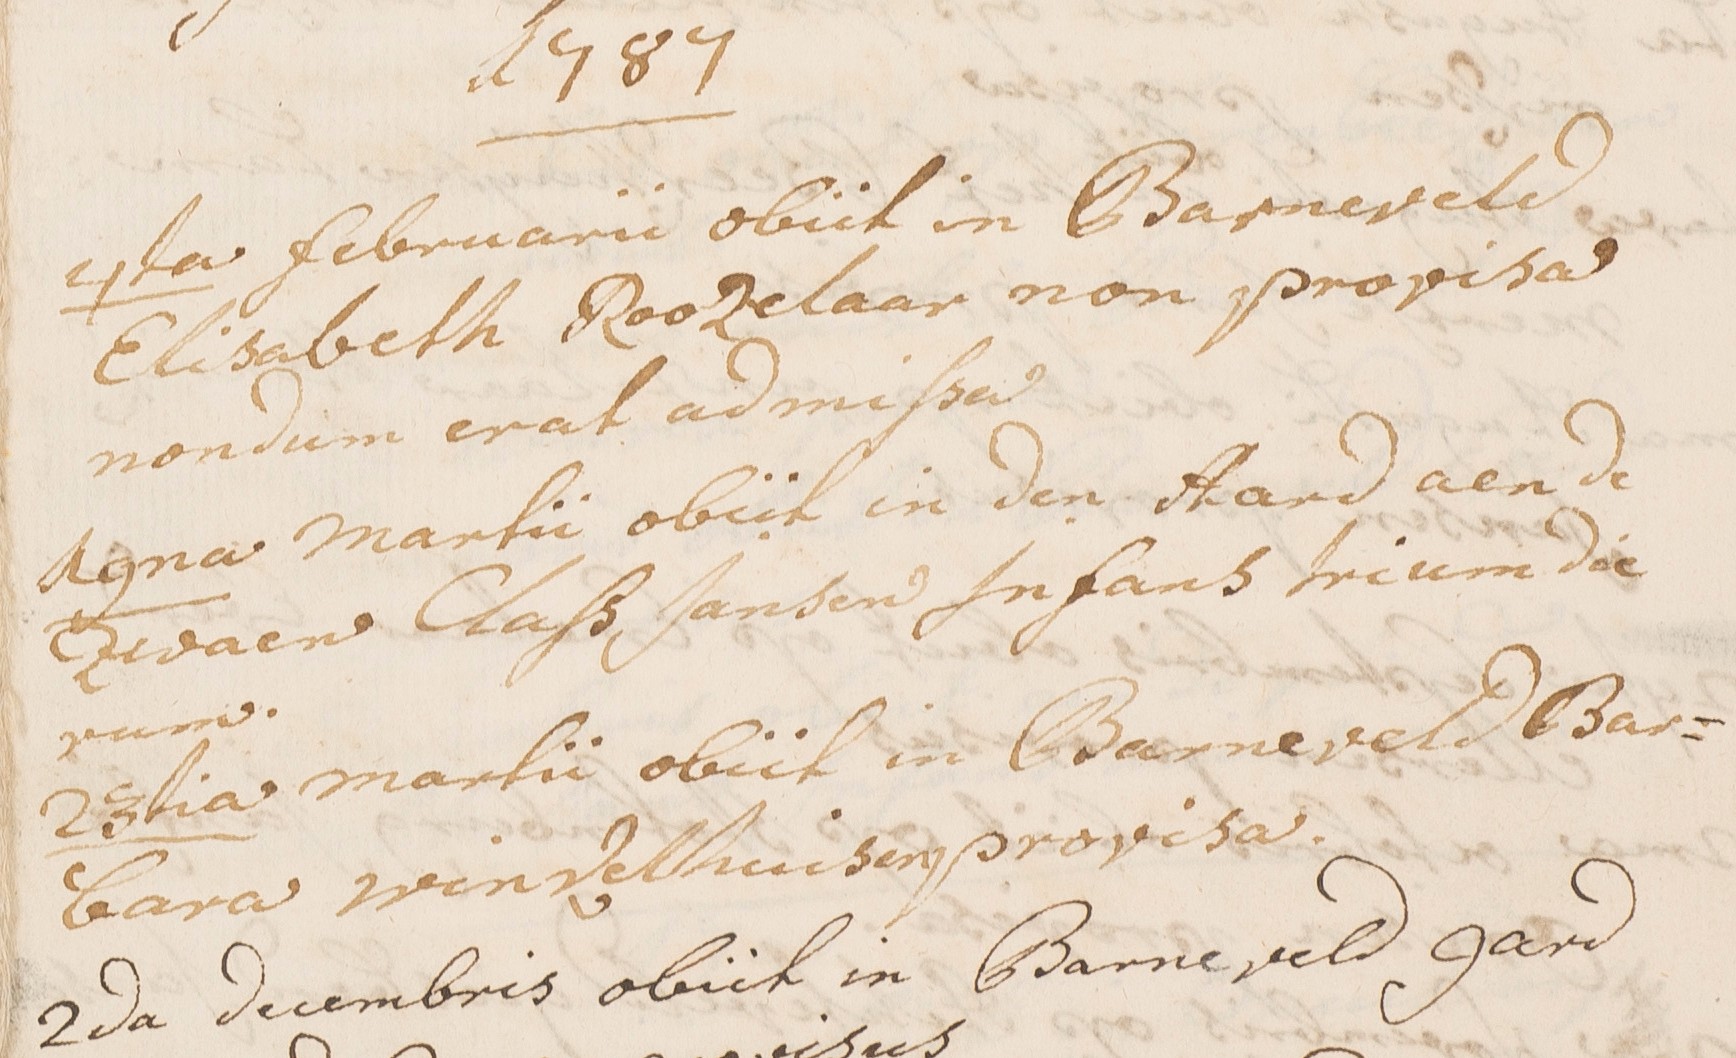 1787
4ta februarii obiit in Barneveld
Elisabeth Roozelaar non provisa
nondum erat admissa
19na martii obiit in den Aard aen de
Zwaen Claass Jansen Infans trium die
rum.
23tia martii obiit in Barneveld Bar=
bara winzelhuisen provisa.
2da decembris obiit in Barneveld gard
provisus